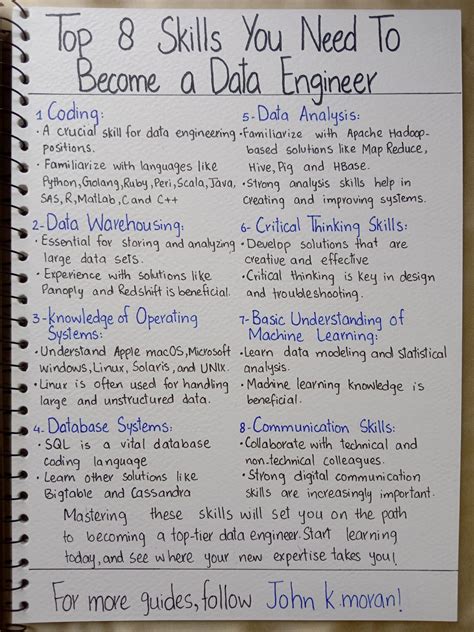 Top 8 Skills You Need To
Become a Data Engineer
1 Coding:
• A crucial skill for data engineering
positions.
• Familiarize with languages like
Python, Golang, Ruby, Peri, Scala, Java,
SAS, R, Matlab, C and C++
2-Data Warehousing:
• Essential for storing and analyzing
large data sets.
• Experience with solutions like
Panoply and Redshift is beneficial.
3-Knowledge of Operating
Systems:
• Understand Apple macOS, Microsoft
Windows, Linux, Solaris, and UNIX.
• Linux is often used for handling
large and unstructured data.
4-Database Systems:
• SQL is a vital database
coding language
• Learn other solutions like
Bigtable and Cassandra
5-Data Analysis:
• Familiarize with Apache Hadoop-
based solutions like Map Reduce,
Hive, Pig and HBase.
• Strong analysis skills help in
creating and improving systems.
6- Critical Thinking Skills:
• Develop solutions that are
creative and effective
• Critical thinking is key in design
and troubleshooting.
7-Basic Understanding of
Machine Learning:
• Learn data modeling and statistical
analysis.
• Machine learning knowledge is
beneficial.
8-Communication Skills:
• Collaborate with technical and
non-technical colleagues.
• Strong digital communication
skills are increasingly important.
Mastering these skills will set you on the path
to becoming a top-tier data engineer. Start learning
today, and see where your new expertise takes you!
For more guides, follow John k.moran!